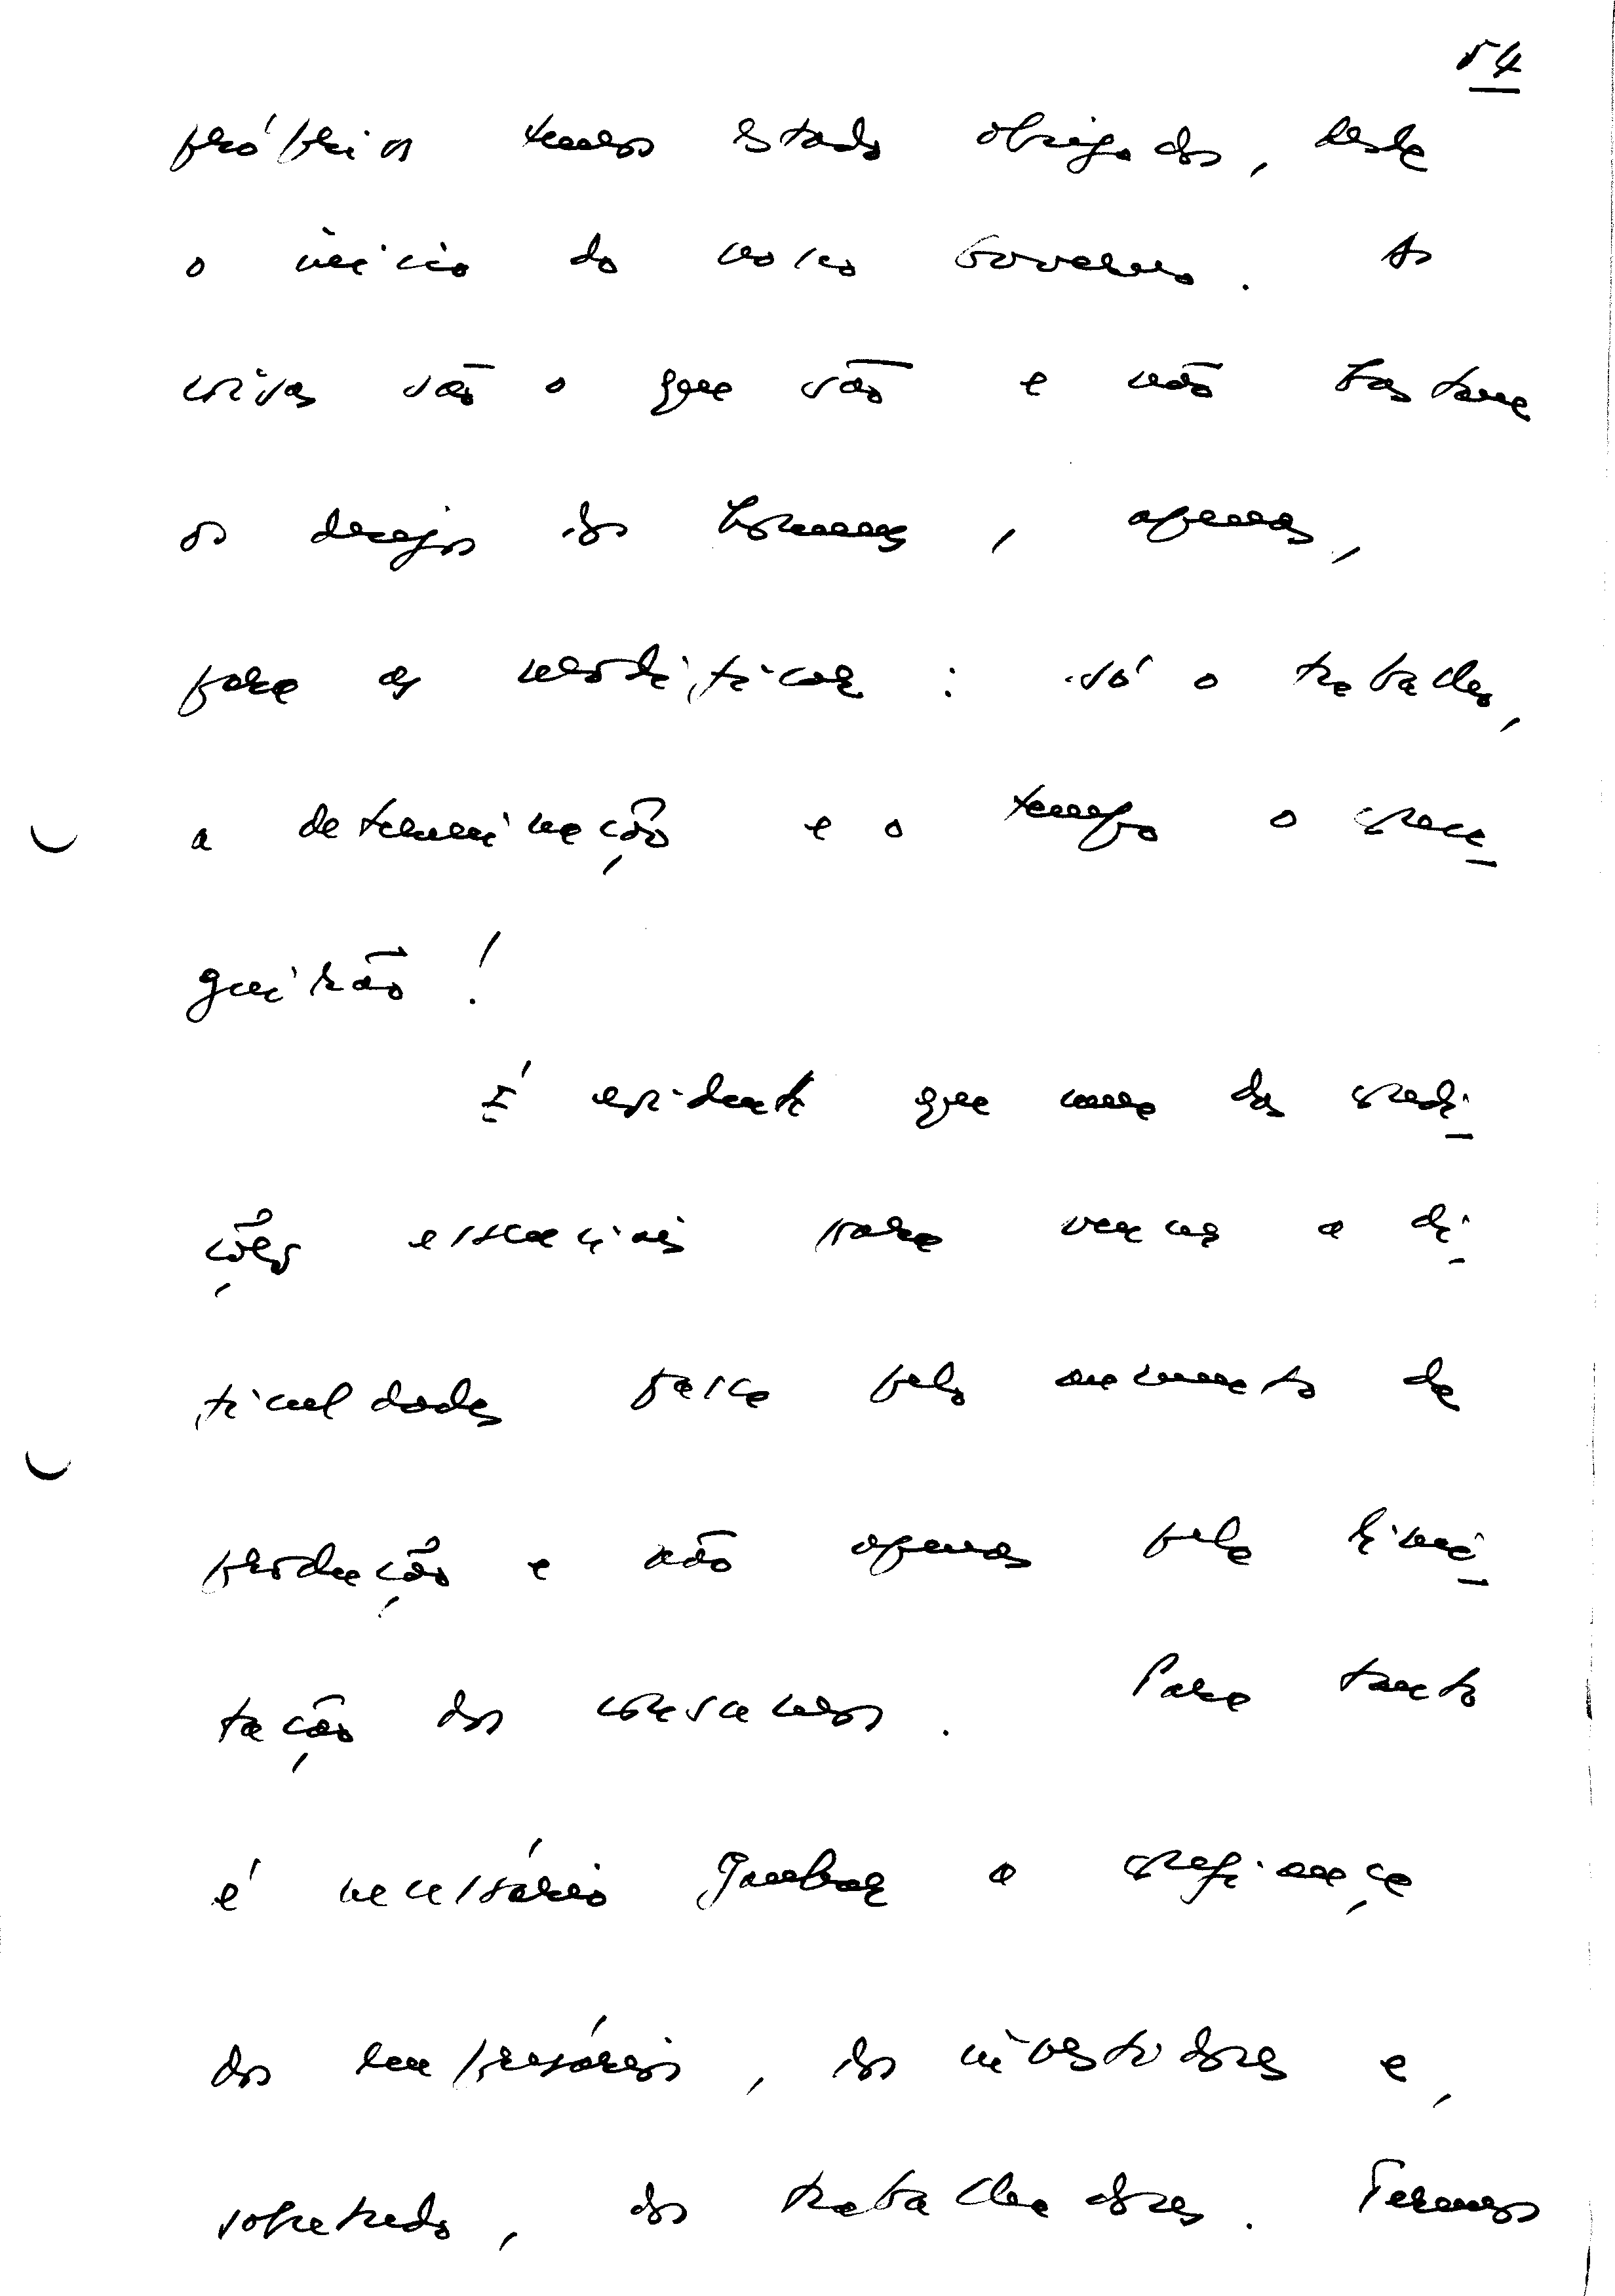 54
próprios temos estado obrigados, desde
o início do nosso Governo. As
coisas são o que são e não bastam
os desejos dos homens, apenas,
para as modificar: só o trabalho,
a determinação e o tempo o conse
guirão!
É evidente que uma das condi
ções essenciais para vencer a di
ficuldades passa pelo aumento da
produção e não apenas pela limi
tação dos consumos. Para tanto
é necessário ganhar a confiança
dos empresários, dos investidores e,
sobretudo, dos trabalhadores. Teremos